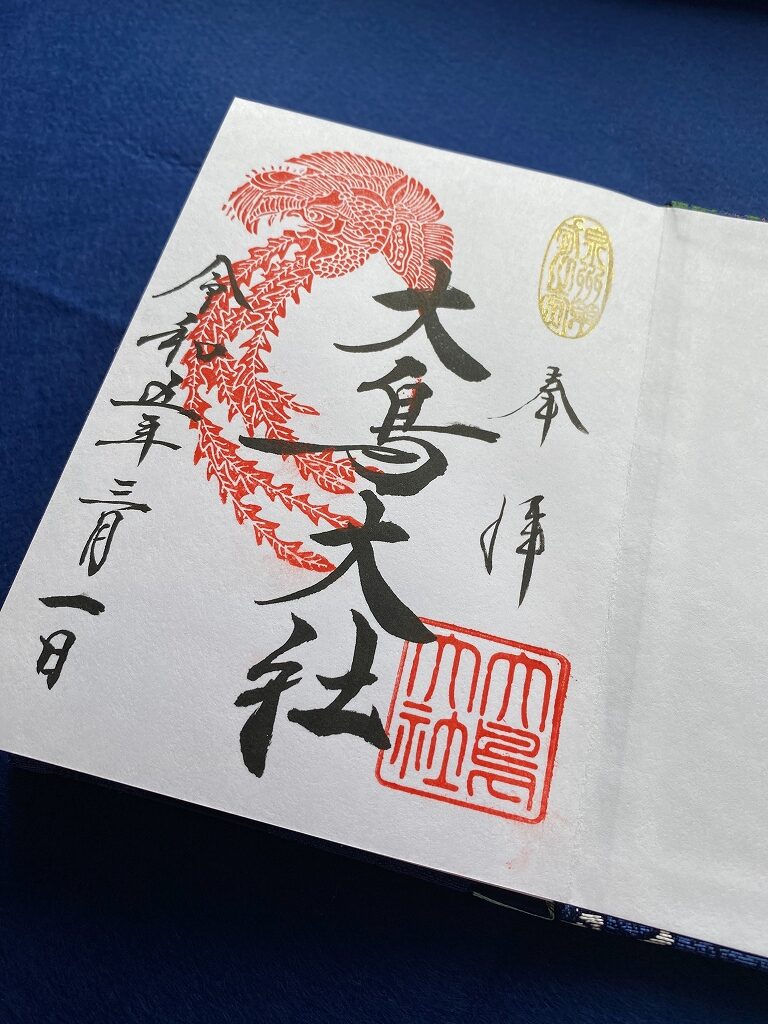 奉拝
大鳥大社
大鳥
大社
令和五年三月一日